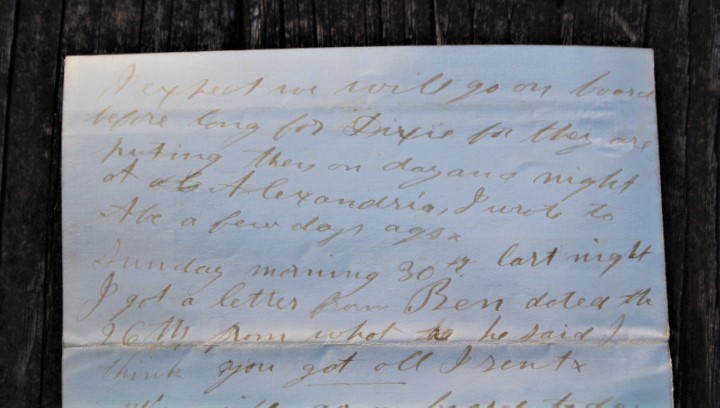 I expect we will go on board
before long for Dixie for they are
puting them on day and night
at Alexandria, I wrote to
Abe a few days ago x
Sunday morning 30th. last night
I got a letter from Ben dated the
26th from what he said I
think you got all I sent x